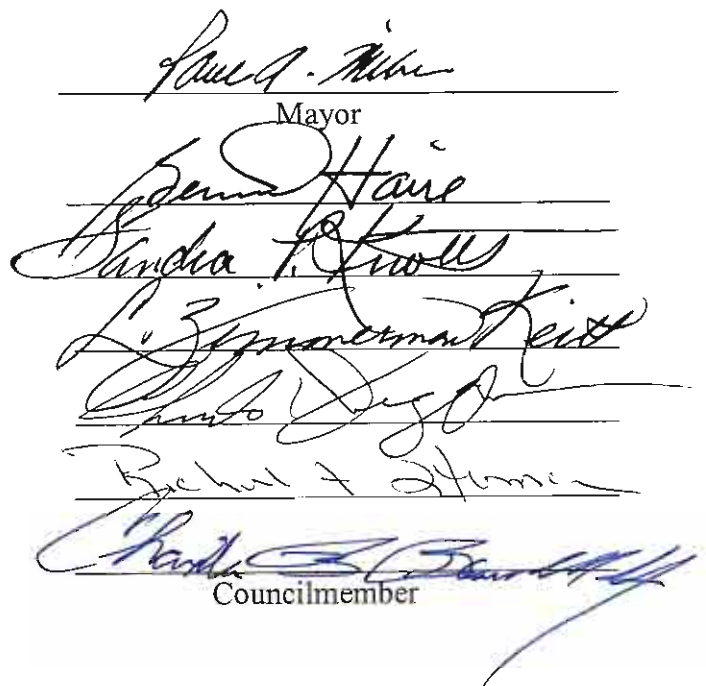 Paul A. Miller
Mayor
Bernard Haire
Sandra P. Knotts
L. Zimmerman Keitt
Richard F. Stroman
Councilmember